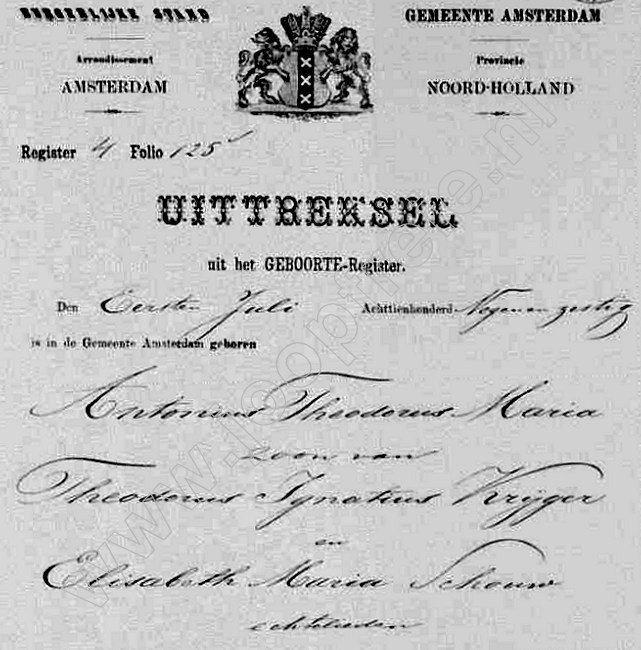 BURGERLIJKE STAND
GEMEENTE AMSTERDAM
Arrondissement
AMSTERDAM
Provincie
NOORD-HOLLAND
Register 4 Folio 125
UITTREKSEL
uit het GEBOORTE-Register.
Den Eersten Juli Achttienhonderd Negenenzestig
is in de Gemeente Amsterdam geboren
Antonius Theodorus Maria
zoon van
Theodorus Ignatius Krijger
en
Elisabeth Maria Schouw
echtelieden